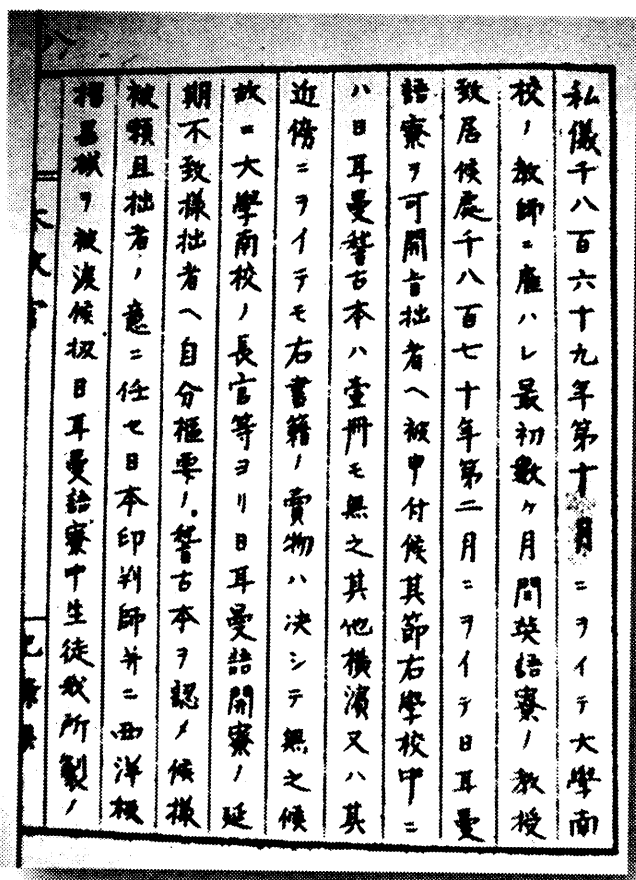 私儀千八百六十九年第十月ニヲイテ大學南
校ノ教師ニ雇ハレ最初數ヶ月間英語寮ノ教授
致居候處千八百七十年第二月ニヲイテ日耳曼
語寮ヲ可開旨拙者ヘ被申付候其節右學校中ニ
ハ日耳曼稽古本ハ壹冊モ無之其他横濱又ハ其
近傍ニヲイテモ右書籍ノ賣物ハ决シテ無之候
故ニ大學南校ノ長官等ヨリ日耳曼語開寮ノ延
期不致様拙者ヘ自分樞要ノ稽古本ヲ認メ候様
被頼且拙者ノ意ニ任セ日本印判師并ニ西洋板
摺器械ヲ被渡候扨日耳曼語寮中生徒我所製ノ